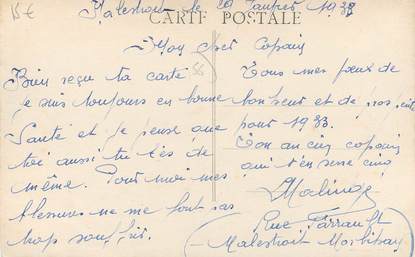 15€
Malestroit le 10 Janvier 1933
CARTE POSTALE
Mon cher Copain
Bien reçu ta carte
je suis toujours en bonne
Santé et je pense que
toi aussi tu es de
même. Pour moi mes
blessures ne me font pas
trop souffrir.
Tous mes vœux de
bonheur et de
pour 1933.
Ton ancien copain
qui t'en serre cinq
Malinge
Rue
Malestroit Morbihan